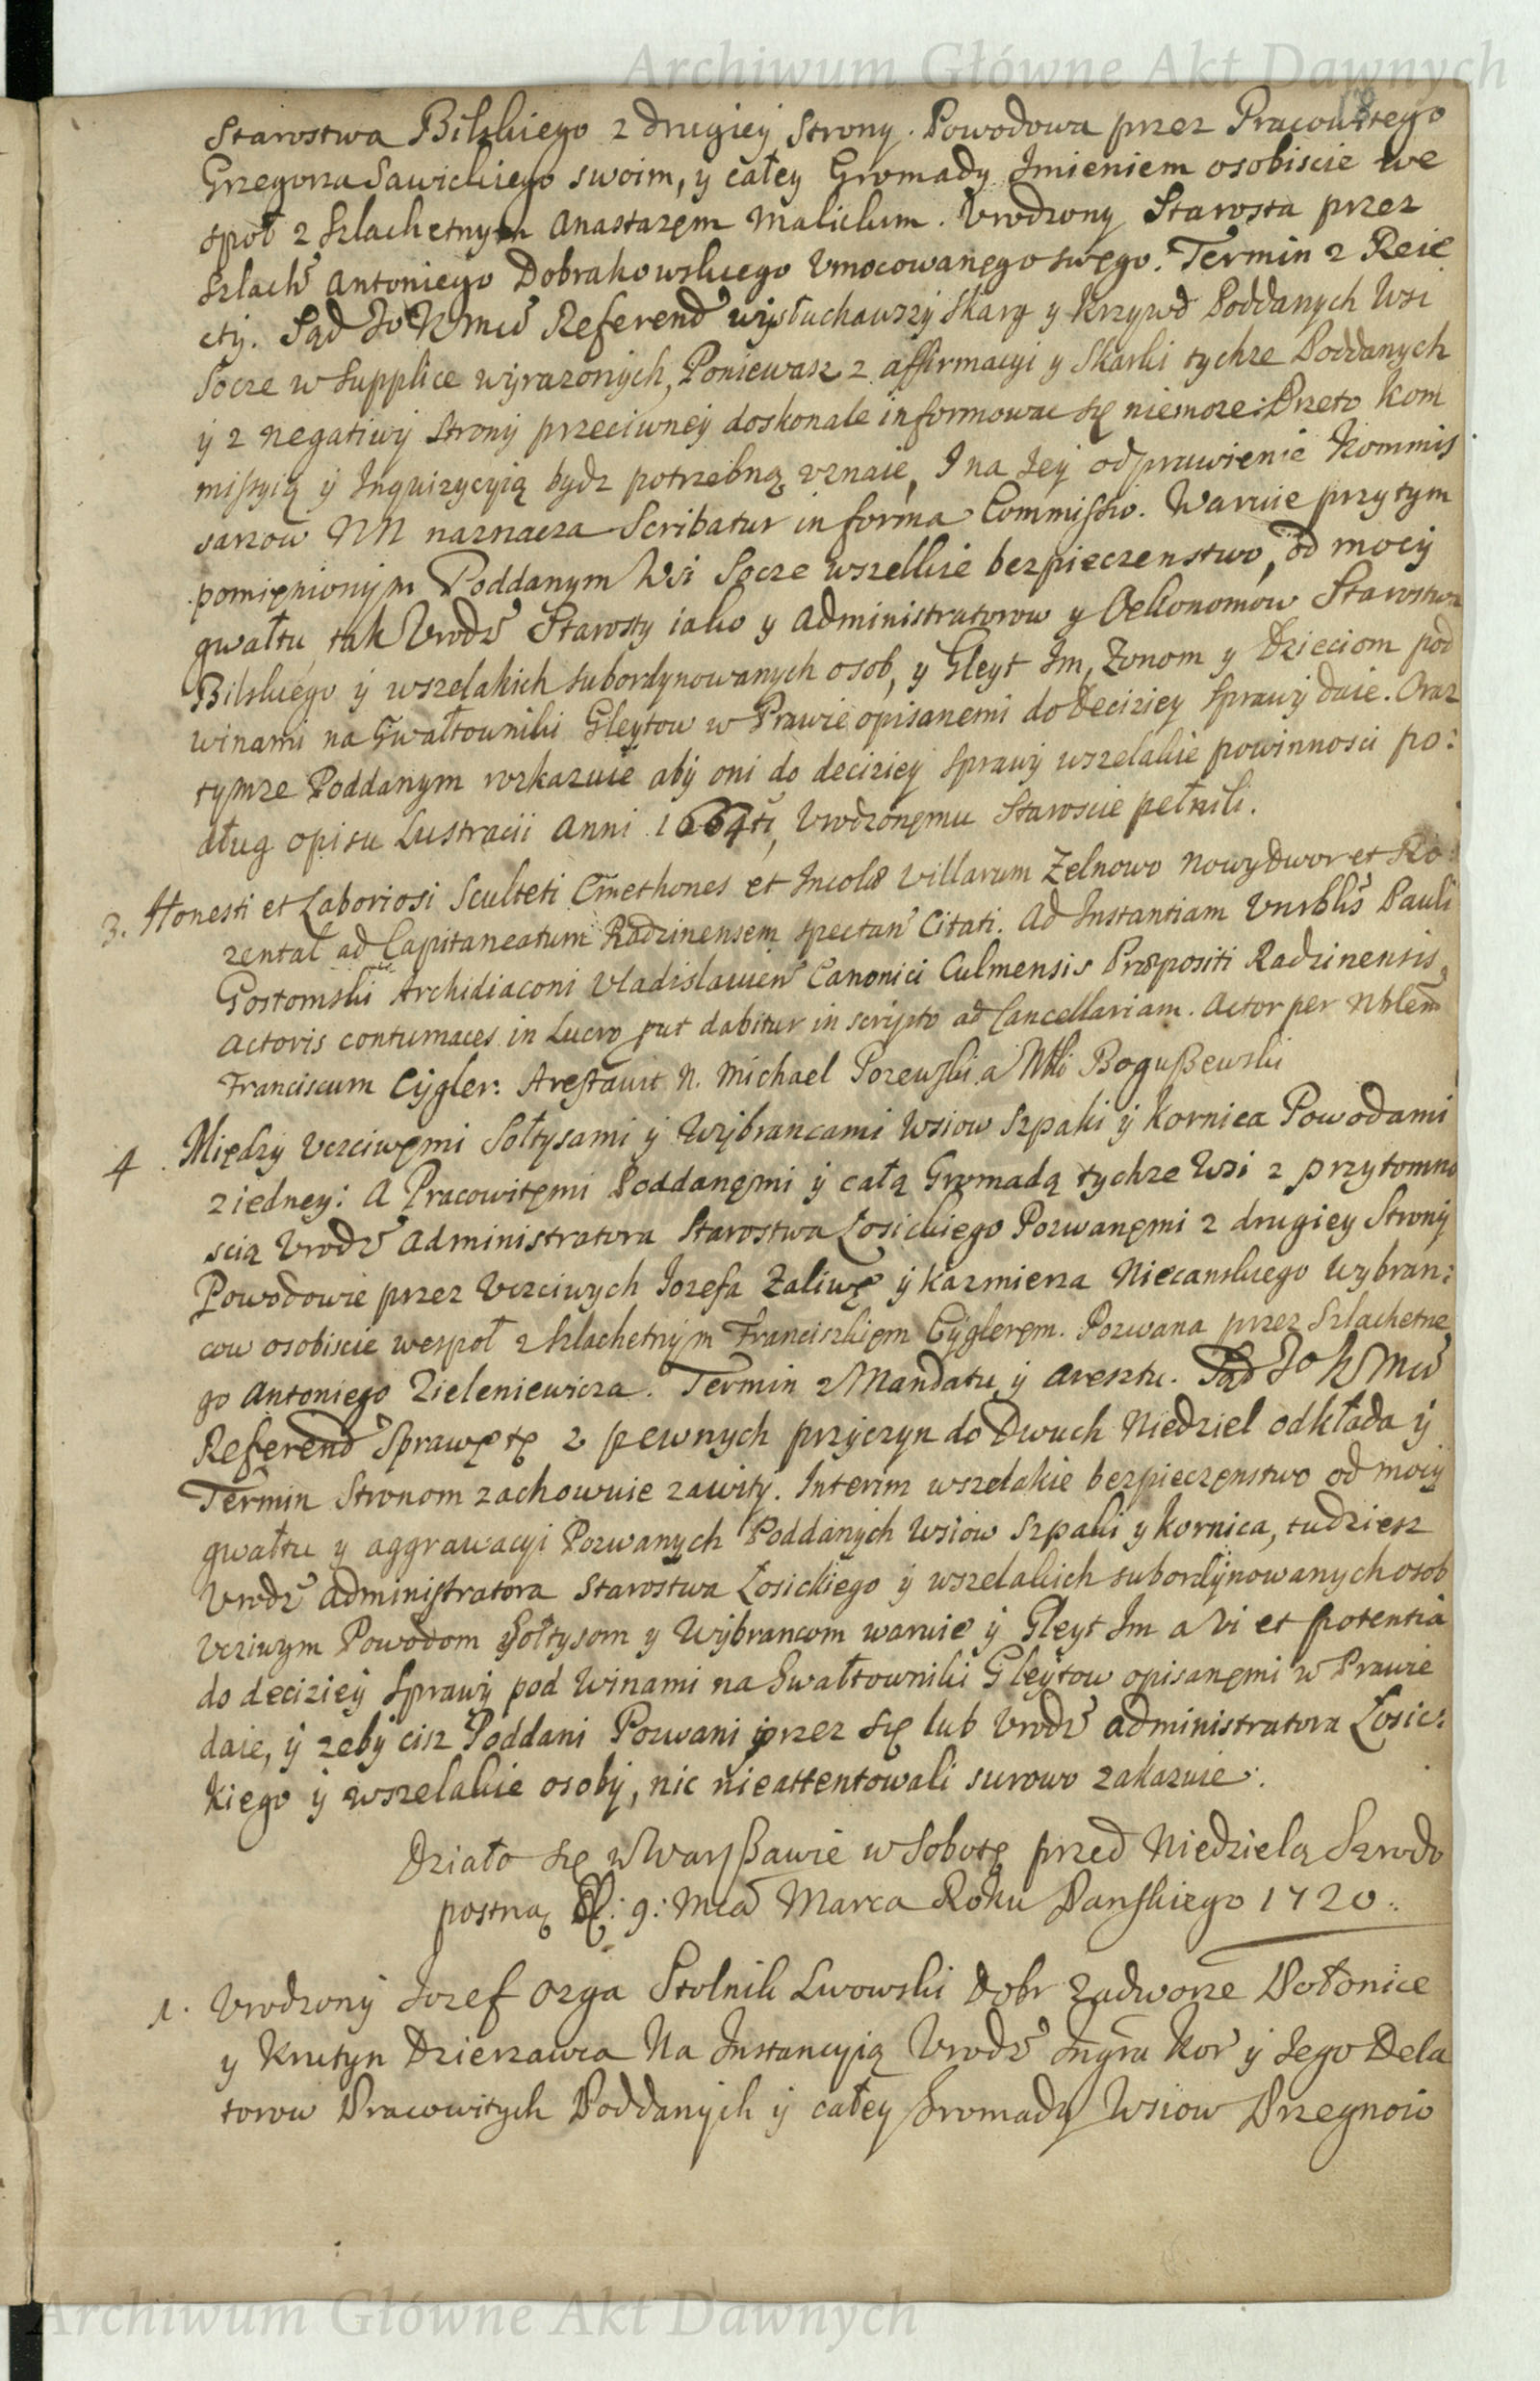 Archiwum Główne Akt Dawnych
Starostwa Bilskiego z drugiey Strony. Powodowa przez Pracowitego
Grzegorza Sawickiego swoim, y całey Gromady Imieniem osobiscie we
społ z Szlachetnym Anastazem Malickim. Vrodzony Starosta przez
Szlach Antoniego Dobrakowskiego Vmocowanęgo swęgo. Termin z Reie
cty. Sąd Jo K Mci Referend wysłuchawszy Skarg y Krzywd Poddanych Wsi
Socze w Supplice wyrazonych, Poniewasz z affirmacyi y Skarki tychze Poddanych
y z negatiwy Strony przeciwney doskonale informowac się niemoze: Przeto Kom
missyią y Inquizycyią bydz potrzebną vznaie, I na Iey odprawienie Kommis
sarzow NN naznacza Scribatur in forma Commissio. Waruie przytym
pomięnionym Poddanym Wsi Socze wszelkie bezpieczenstwo, od mocy
gwałtu, tak Vrodz Starosty iako y Administratorow y Oekonomow Starostwa
Bilskiego y wszelakich subordynowanych osob, y Gleyt Im, Zonom y Dzieciom pod
winami na Gwałtowniki Gleytow w Prawie opisanemi do deciziey Sprawy daie. Oraz
tymze Poddanym rozkazuie aby oni do deciziey Sprawy wszelakie powinnosci po:
dług opisu Lustracii Anni 1664ti, Vrodzonęmu Staroscie pełnili.
3. Honesti et Laboriosi Sculteti Cmethones et Incolæ Villarum Zelnowo Nowydwor et Ro:
zental ad Capitaneatum Radzinensem spectan Citati. Ad Instantiam Vnrblis Pauli
Gostomski Archidiaconi Vladislavien Canonici Culmensis Præpositi Radzinensis
Actoris contumaces in Lucro put dabitur in scripto ad Cancellariam. Actor per Nblem
Franciscum Cygler. Arestavit N. Michael Pozewski a Nbli Bogußewski
4. Między Vcziwęmi Sołtysami y Wybrancami Wsiow Szpaki y Kornica Powodami
z iedney: A Pracowitęmi Poddanęmi y całą Gromadą tychze Wsi z przytomno
scią Vrodz Administratora Starostwa Łosickiego Pozwanęmi z drugiey Strony
Powodowie przez Vcziwych Iozefa Zaliwę y Kazmierza Niecanskiego Wybran:
cow osobiscie wespoł z Szlachetnym Franciszkięm Cyglerem. Pozwana przez Szlachetne
go Antoniego Zieleniewicza. Termin z Mandatu y Aresztu. Sąd Jo K Mci
Referend Sprawę tę z pewnych przyczyn do Dwuch Niedziel odkłada y
Termin Stronom zachowuie zawity. Interim wszelakie bezpieczęnstwo od mocy
gwałtu y aggrawacyi Pozwanych Poddanych Wsiow Szpaki y Kornica, tudziesz
Vrodz Administratora Starostwa Łosickiego y wszelakich subordynowanych osob
Vcziwym Powodom Sołtysom y Wybrancom waruie y Gleyt Im a vi et potentia
do deciziey Sprawy pod Winami na Gwałtowniki Gleytow opisanęmi w Prawie
daie, y zeby cisz Poddani Pozwani przez się lub Vrodz Administratora Łosic:
kiego y wszelakie osoby, nic nieattentowali surowo zakazuie.
Działo się w Warßawie w Sobotę przed Niedzielą Szrodo
postną D: 9: Mca Marca Roku Panskiego 1720.
1. Vrodzony Iozef Ozga Stolnik Lwowski Dobr Zadworze Połonice
y Krutyn Dzierzawca Na Instancyią Vrodz Ingra Kor y Iego Dela
torow Pracowitych Poddanych y całey Gromady Wsiow Przegnoio
Archiwum Główne Akt Dawnych